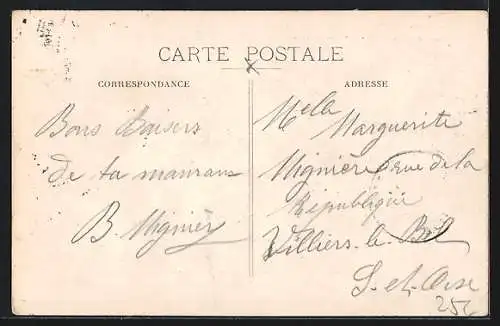 CARTE POSTALE
CORRESPONDANCE
ADRESSE
Bons Baisers
de ta
B. Mignier
Melle
Marguerite
Mignière rue de la
République
Villiers-le-Bel
S.-et-Oise